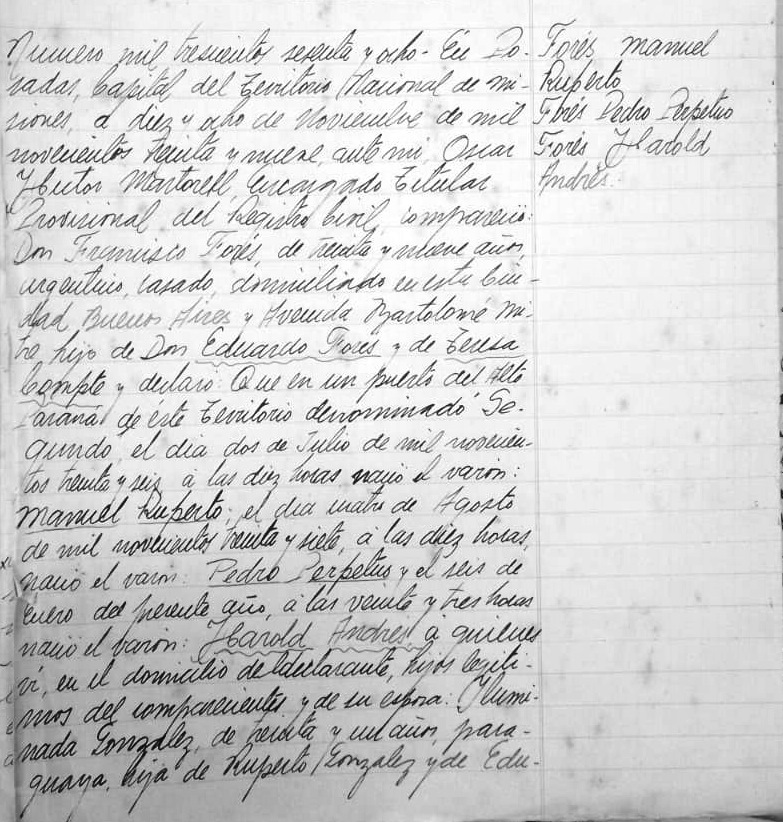 Numero mil trescientos sesenta y ocho - En Po-
sadas, Capital del Territorio Nacional de Mi-
siones, a diez y ocho de Noviembre de mil
novecientos treinta y nueve, ante mi, Oscar
Hector Martorell, Encargado Titular
Provisional del Registro Civil, compareció:
Don Francisco Forés, de treinta y nueve años,
argentino, casado, domiciliado en esta Ciu-
dad Buenos Aires y Avenida Bartolomé Mi-
tre hijo de Don Eduardo Fores y de Teresa
Compte y declaró: Que en un puerto del Alto
Paraná de este Territorio denominado Se-
gundo, el dia dos de Julio de mil novecien-
tos treinta y seis, a las diez horas nació el varón:
Manuel Ruperto; el dia cuatro de Agosto
de mil novecientos treinta y siete, a las diez horas,
nació el varon: Pedro Perpetuo y el seis de
Enero del presente año, a las veinte y tres horas
nació el varon: Harold Andres a quienes
ví, en el domicilio del declarante, hijos legiti-
mos del compareciente y de su esposa: Ilumi-
nada González, de treinta y un años, para-
guaya, hija de Ruperto Gonzalez y de Edu-
Forés Manuel
Ruperto
Forés Pedro Perpetuo
Forés Harold
Andrés.